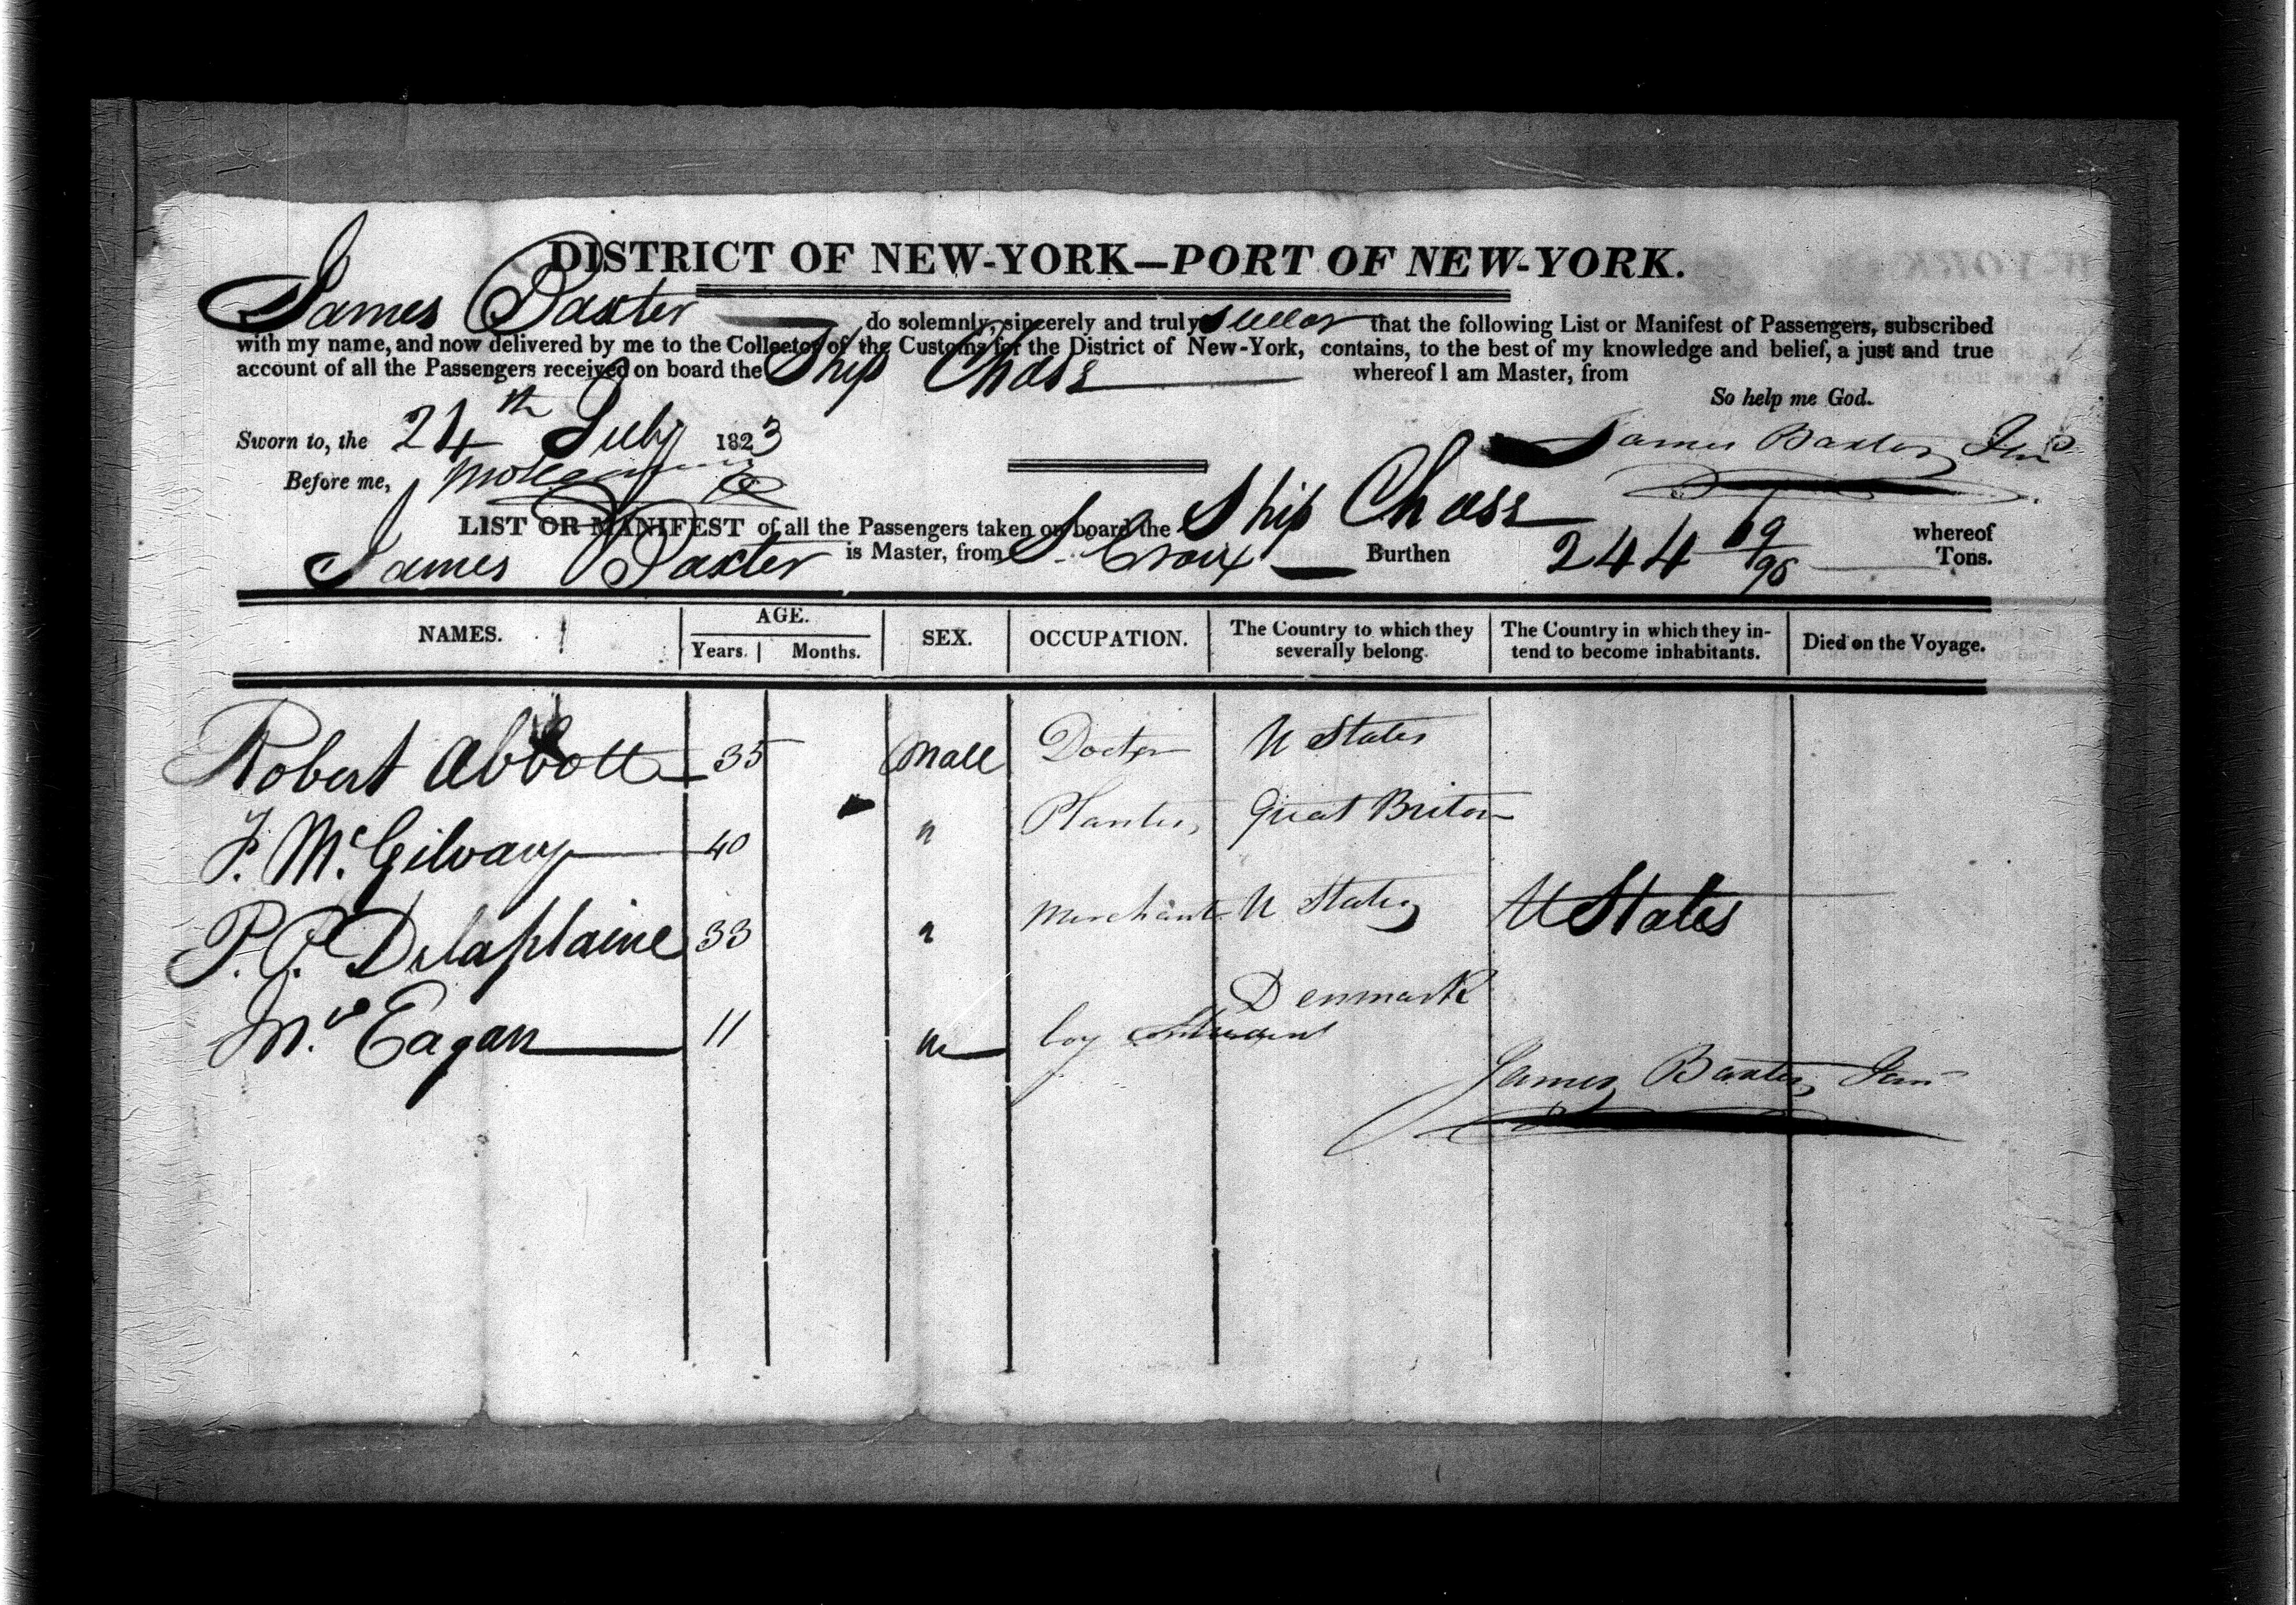 DISTRICT OF NEW-YORK—PORT OF NEW-YORK.
James Baxter do solemnly, sincerely and truly swear that the following List or Manifest of Passengers, subscribed
with my name, and now delivered by me to the Collector of the Customs for the District of New-York, contains, to the best of my knowledge and belief, a just and true
account of all the Passengers received on board the Ship Chase whereof I am Master, from
So help me God.
Sworn to, the 24th July 1823 James Baxter Jun
Before me,
LIST OR MANIFEST of all the Passengers taken on board the Ship Chase whereof
James Baxter is Master, from St Croix Burthen 244 19/95 Tons.
NAMES. AGE. Years. Months. SEX. OCCUPATION. The Country to which they severally belong. The Country in which they intend to become inhabitants. Died on the Voyage.
Robert Abbott 35 Male Doctor U States
F. McGilvary 40 " Planter Great Briton
P. C. Delaplaine 33 " Merchant U States U States
Denmark
Eagan 11 boy
James Baxter Jun